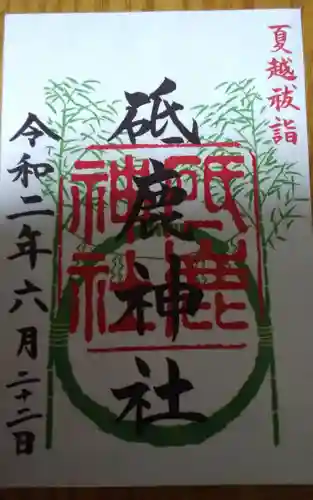 夏越祓詣
砥鹿神社
砥鹿神社
令和二年六月二十二日